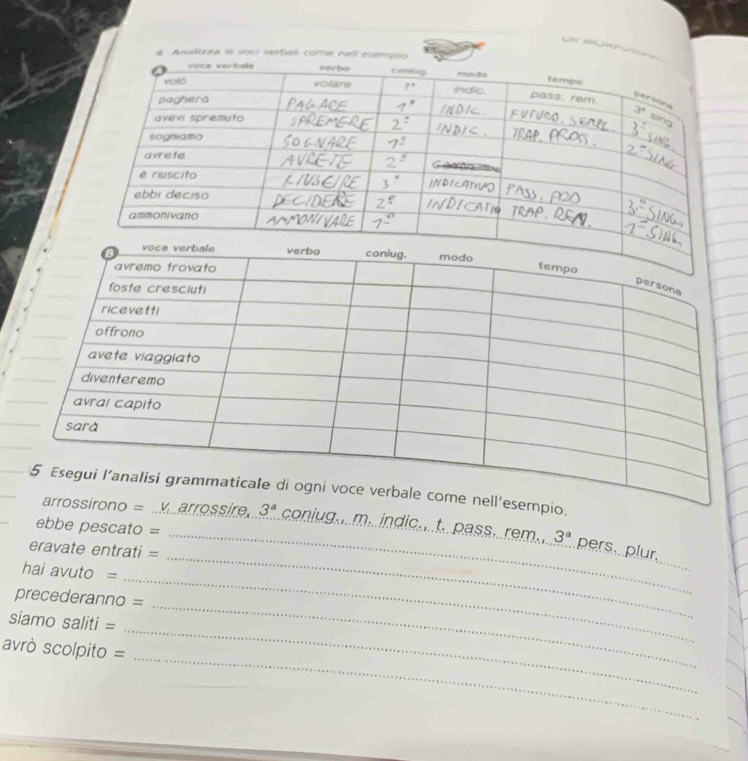 4 Analizza le voci verbali come nell'esempio.
A voce verbale verbo coniug. modo tempo persona
volò volare 1ª indic. pass. rem. 3ª sing
pagherà PAGACE 1ª INDIC. FUTURO. SEMPL. 3ª SING.
avevi spremuto SPREMERE 2ª INDIC. TRAP. PROSS. 2ª SING
sogniamo SOGNARE 1ª
avrete AVRETE 2ª
è riuscito RIUSCIRE 3ª INDICATIVO PASS. PRO 3ª SING.
ebbi deciso DECIDERE 2ª INDICATIVO TRAP. REM. 1ª SING.
ammonivano AMMONIVARE 1ª
B voce verbale verbo coniug. modo tempo persona
avremo trovato
foste cresciuti
ricevetti
offrono
avete viaggiato
diventeremo
avrai capito
sarà
5 Esegui l'analisi grammaticale di ogni voce verbale come nell'esempio.
arrossirono = v. arrossire, 3ª coniug., m. indic., t. pass. rem., 3ª pers. plur.
ebbe pescato =
eravate entrati =
hai avuto =
precederanno =
siamo saliti =
avrò scolpito =